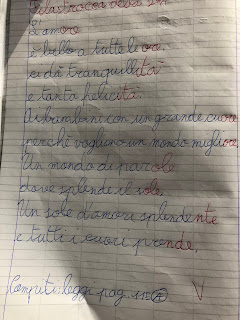 Filastrocca della
L'amore
è bello a tutte le ore
ci dà tranquillità
e tanta felicità.
Di bambini con un grande cuore
perché vogliono un mondo migliore
Un mondo di parole
dove splende il sole
Un sole d'amore splendente
e tutti i cuori prende
Compiti: leggi pag. 112
V